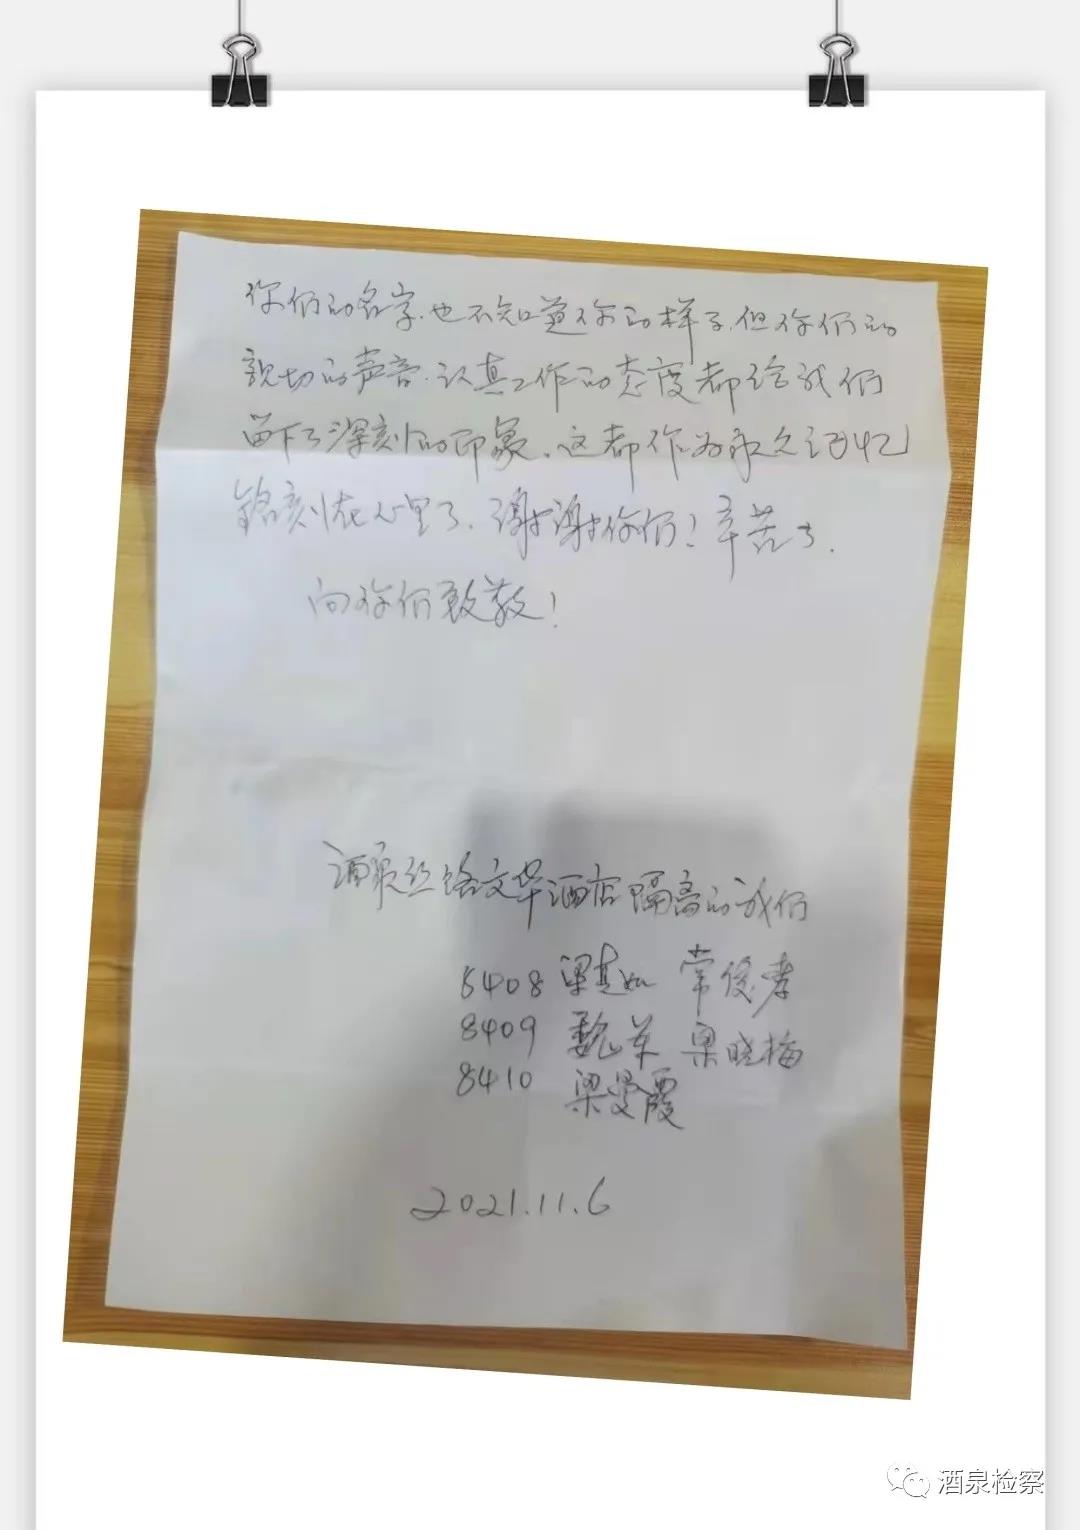 你们的名字.也不知道你的样子.但你们的
亲切的声音.认真工作的态度都给我们
留下了深刻的印象.这都作为永久记忆
铭刻在心里了.谢谢你们!辛苦了.
向你们致敬!
酒泉丝路文华酒店隔离的我们
8408 梁其如 常俊孝
8409 魏军 梁晓梅
8410 梁曼霞
2021.11.6
酒泉检察